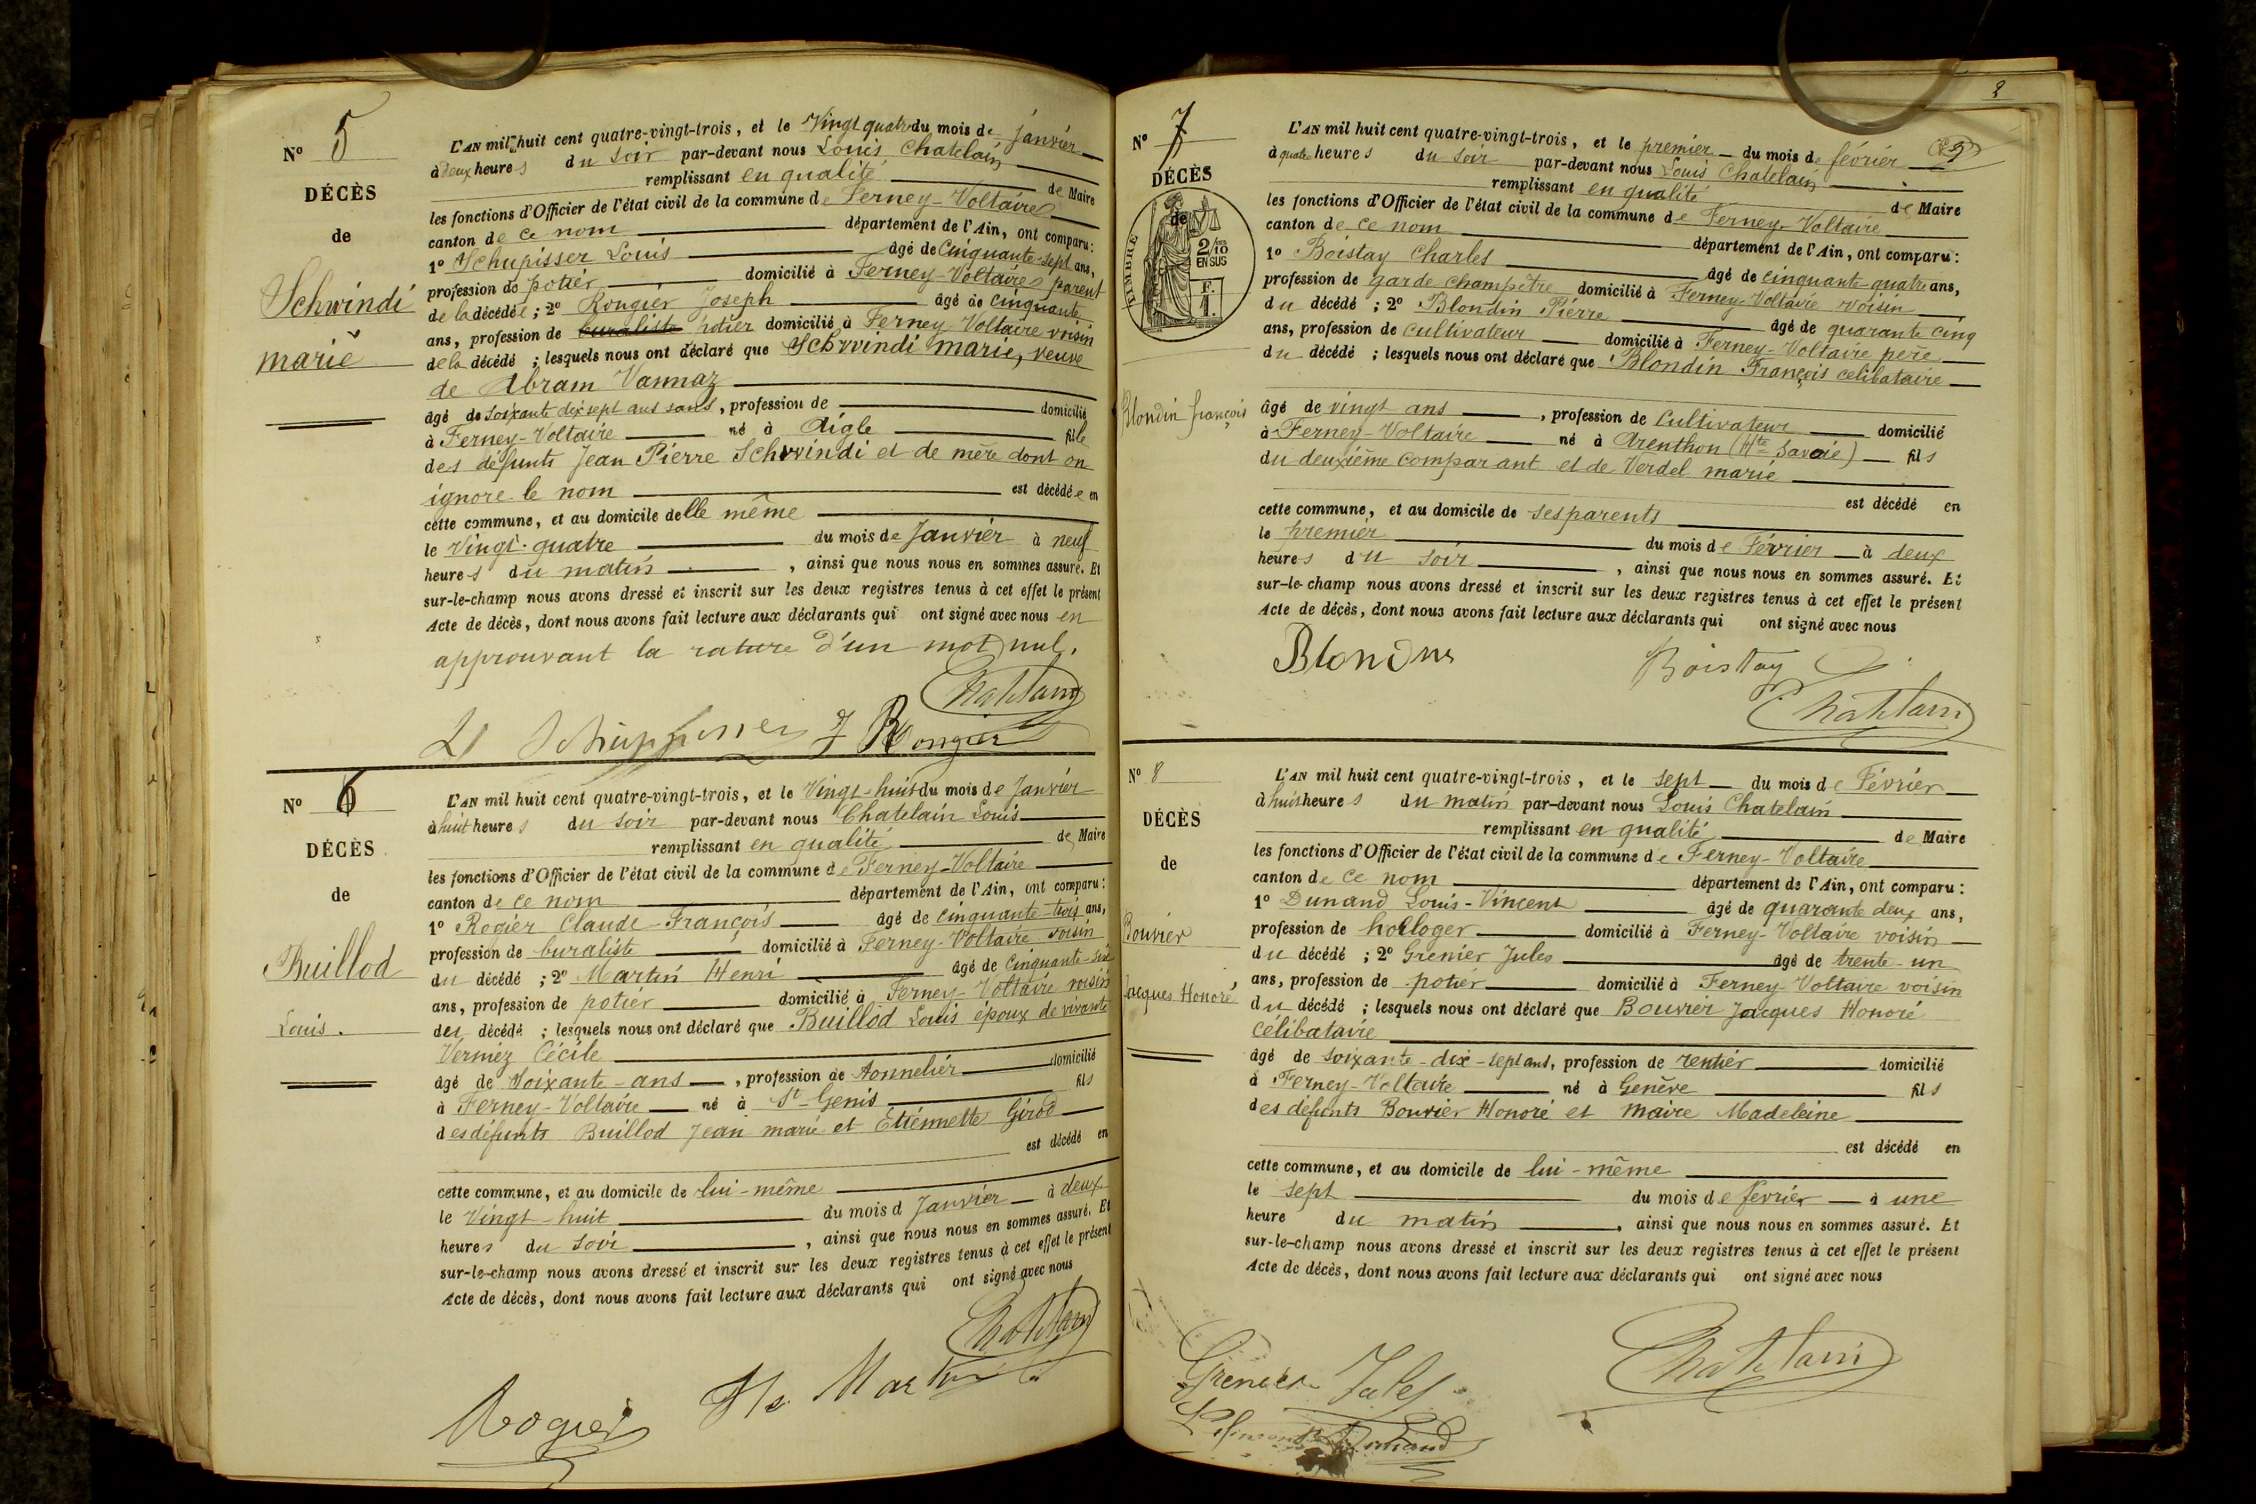 Nº 5
DÉCÈS
de
Schwindi
marie
L'AN mil huit cent quatre-vingt-trois, et le Vingt quatre du mois de janvier
à deux heures du soir par-devant nous Louis Chatelain
remplissant en qualité de Maire
les fonctions d'Officier de l'état civil de la commune de Ferney-Voltaire
canton de ce nom département de l'Ain, ont comparu:
1º Schupisser Louis âgé de Cinquante-sept ans,
profession de potier domicilié à Ferney-Voltaire parent
de la décédée; 2º Rougier Joseph âgé de cinquante
ans, profession de buraliste potier domicilié à Ferney Voltaire voisin
de la décédé; lesquels nous ont déclaré que Schwindi marie, veuve
de Abram Vannaz
âgé de soixante dix sept ans sans, profession de domicilié
à Ferney-Voltaire né à Aigle fille
des défunts Jean Pierre Schwindi et de mère dont on
ignore le nom est décédée en
cette commune, et au domicile delle même
le Vingt-quatre du mois de Janvier à neuf
heures du matin, ainsi que nous nous en sommes assuré. Et
sur-le-champ nous avons dressé et inscrit sur les deux registres tenus à cet effet le présent
Acte de décès, dont nous avons fait lecture aux déclarants qui ont signé avec nous en
approuvant la rature d'un mot nul.
Chatelain
L Schuppisser J Rougier
Nº 6
DÉCÈS
de
Buillod
Louis.
L'AN mil huit cent quatre-vingt-trois, et le Vingt-huit du mois de Janvier
à huit heures du soir par-devant nous Chatelain Louis
remplissant en qualité de Maire
les fonctions d'Officier de l'état civil de la commune de Ferney-Voltaire
canton de ce nom département de l'Ain, ont comparu:
1º Rogier Claude-François âgé de cinquante-trois ans,
profession de buraliste domicilié à Ferney-Voltaire voisin
du décédé; 2º Martin Henri âgé de Cinquante-six
ans, profession de potier domicilié à Ferney-Voltaire voisin
du décédé; lesquels nous ont déclaré que Buillod Louis époux de vivante
Verniez Cécile
âgé de Soixante-ans, profession de Tonnelier domicilié
à Ferney-Voltaire né à St Genis fils
des défunts Buillod Jean marie et Etiennette Girod
est décédé en
cette commune, et au domicile de lui-même
le Vingt-huit du mois d Janvier à deux
heures du soir, ainsi que nous nous en sommes assuré. Et
sur-le-champ nous avons dressé et inscrit sur les deux registres tenus à cet effet le présent
Acte de décès, dont nous avons fait lecture aux déclarants qui ont signé avec nous
Chatelain
Rogier He Martin
2
Nº 7
DÉCÈS
de
TIMBRE
2/10
EN SUS
F.
1.
Blondin françois
L'AN mil huit cent quatre-vingt-trois, et le premier du mois de février
à quatre heures du soir par-devant nous Louis Chatelain
remplissant en qualité de Maire
les fonctions d'Officier de l'état civil de la commune de Ferney-Voltaire
canton de ce nom département de l'Ain, ont comparu:
1º Boistay Charles âgé de cinquante-quatre ans,
profession de garde champêtre domicilié à Ferney-Voltaire voisin
du décédé; 2º Blondin Pierre âgé de quarante cinq
ans, profession de Cultivateur domicilié à Ferney-Voltaire père
du décédé; lesquels nous ont déclaré que Blondin François celibataire
âgé de vingt ans, profession de Cultivateur domicilié
à Ferney-Voltaire né à Arenthon (Hte Savoie) fils
du deuxième comparant et de Verdel marie
est décédé en
cette commune, et au domicile de ses parents
le premier du mois de Février à deux
heures du soir, ainsi que nous nous en sommes assuré. Et
sur-le-champ nous avons dressé et inscrit sur les deux registres tenus à cet effet le présent
Acte de décès, dont nous avons fait lecture aux déclarants qui ont signé avec nous
Blondin Boistay
Chatelain
Nº 8
DÉCÈS
de
Bouvier
Jacques Honoré
L'AN mil huit cent quatre-vingt-trois, et le sept du mois de Février
à huit heures du matin par-devant nous Louis Chatelain
remplissant en qualité de Maire
les fonctions d'Officier de l'état civil de la commune de Ferney-Voltaire
canton de ce nom département de l'Ain, ont comparu:
1º Dunand Louis-Vincent âgé de quarante deux ans,
profession de horloger domicilié à Ferney-Voltaire voisin
du décédé; 2º Grenier Jules âgé de trente-un
ans, profession de potier domicilié à Ferney-Voltaire voisin
du décédé; lesquels nous ont déclaré que Bouvier Jacques Honoré
célibataire
âgé de soixante-dix-sept ans, profession de rentier domicilié
à Ferney-Voltaire né à Genève fils
des défunts Bouvier Honoré et Maire Madeleine
est décédé en
cette commune, et au domicile de lui-même
le sept du mois de février à une
heure du matin, ainsi que nous nous en sommes assuré. Et
sur-le-champ nous avons dressé et inscrit sur les deux registres tenus à cet effet le présent
Acte de décès, dont nous avons fait lecture aux déclarants qui ont signé avec nous
Chatelain
Grenier Jules
Dunand